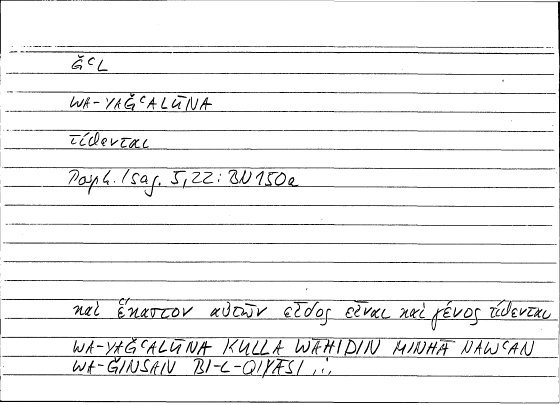 ǦʿL
WA-YAǦʿALŪNA
τίθενται
Porph. Isag. 5,22: BN 150a
καὶ ἕκαστον αὐτῶν εἶδος εἶναι καὶ γένος τίθενται
WA-YAǦʿALŪNA KULLA WĀHIDIN MINHĀ NAWʿAN
WA-ǦINSAN BI-L-QIYĀSI ...